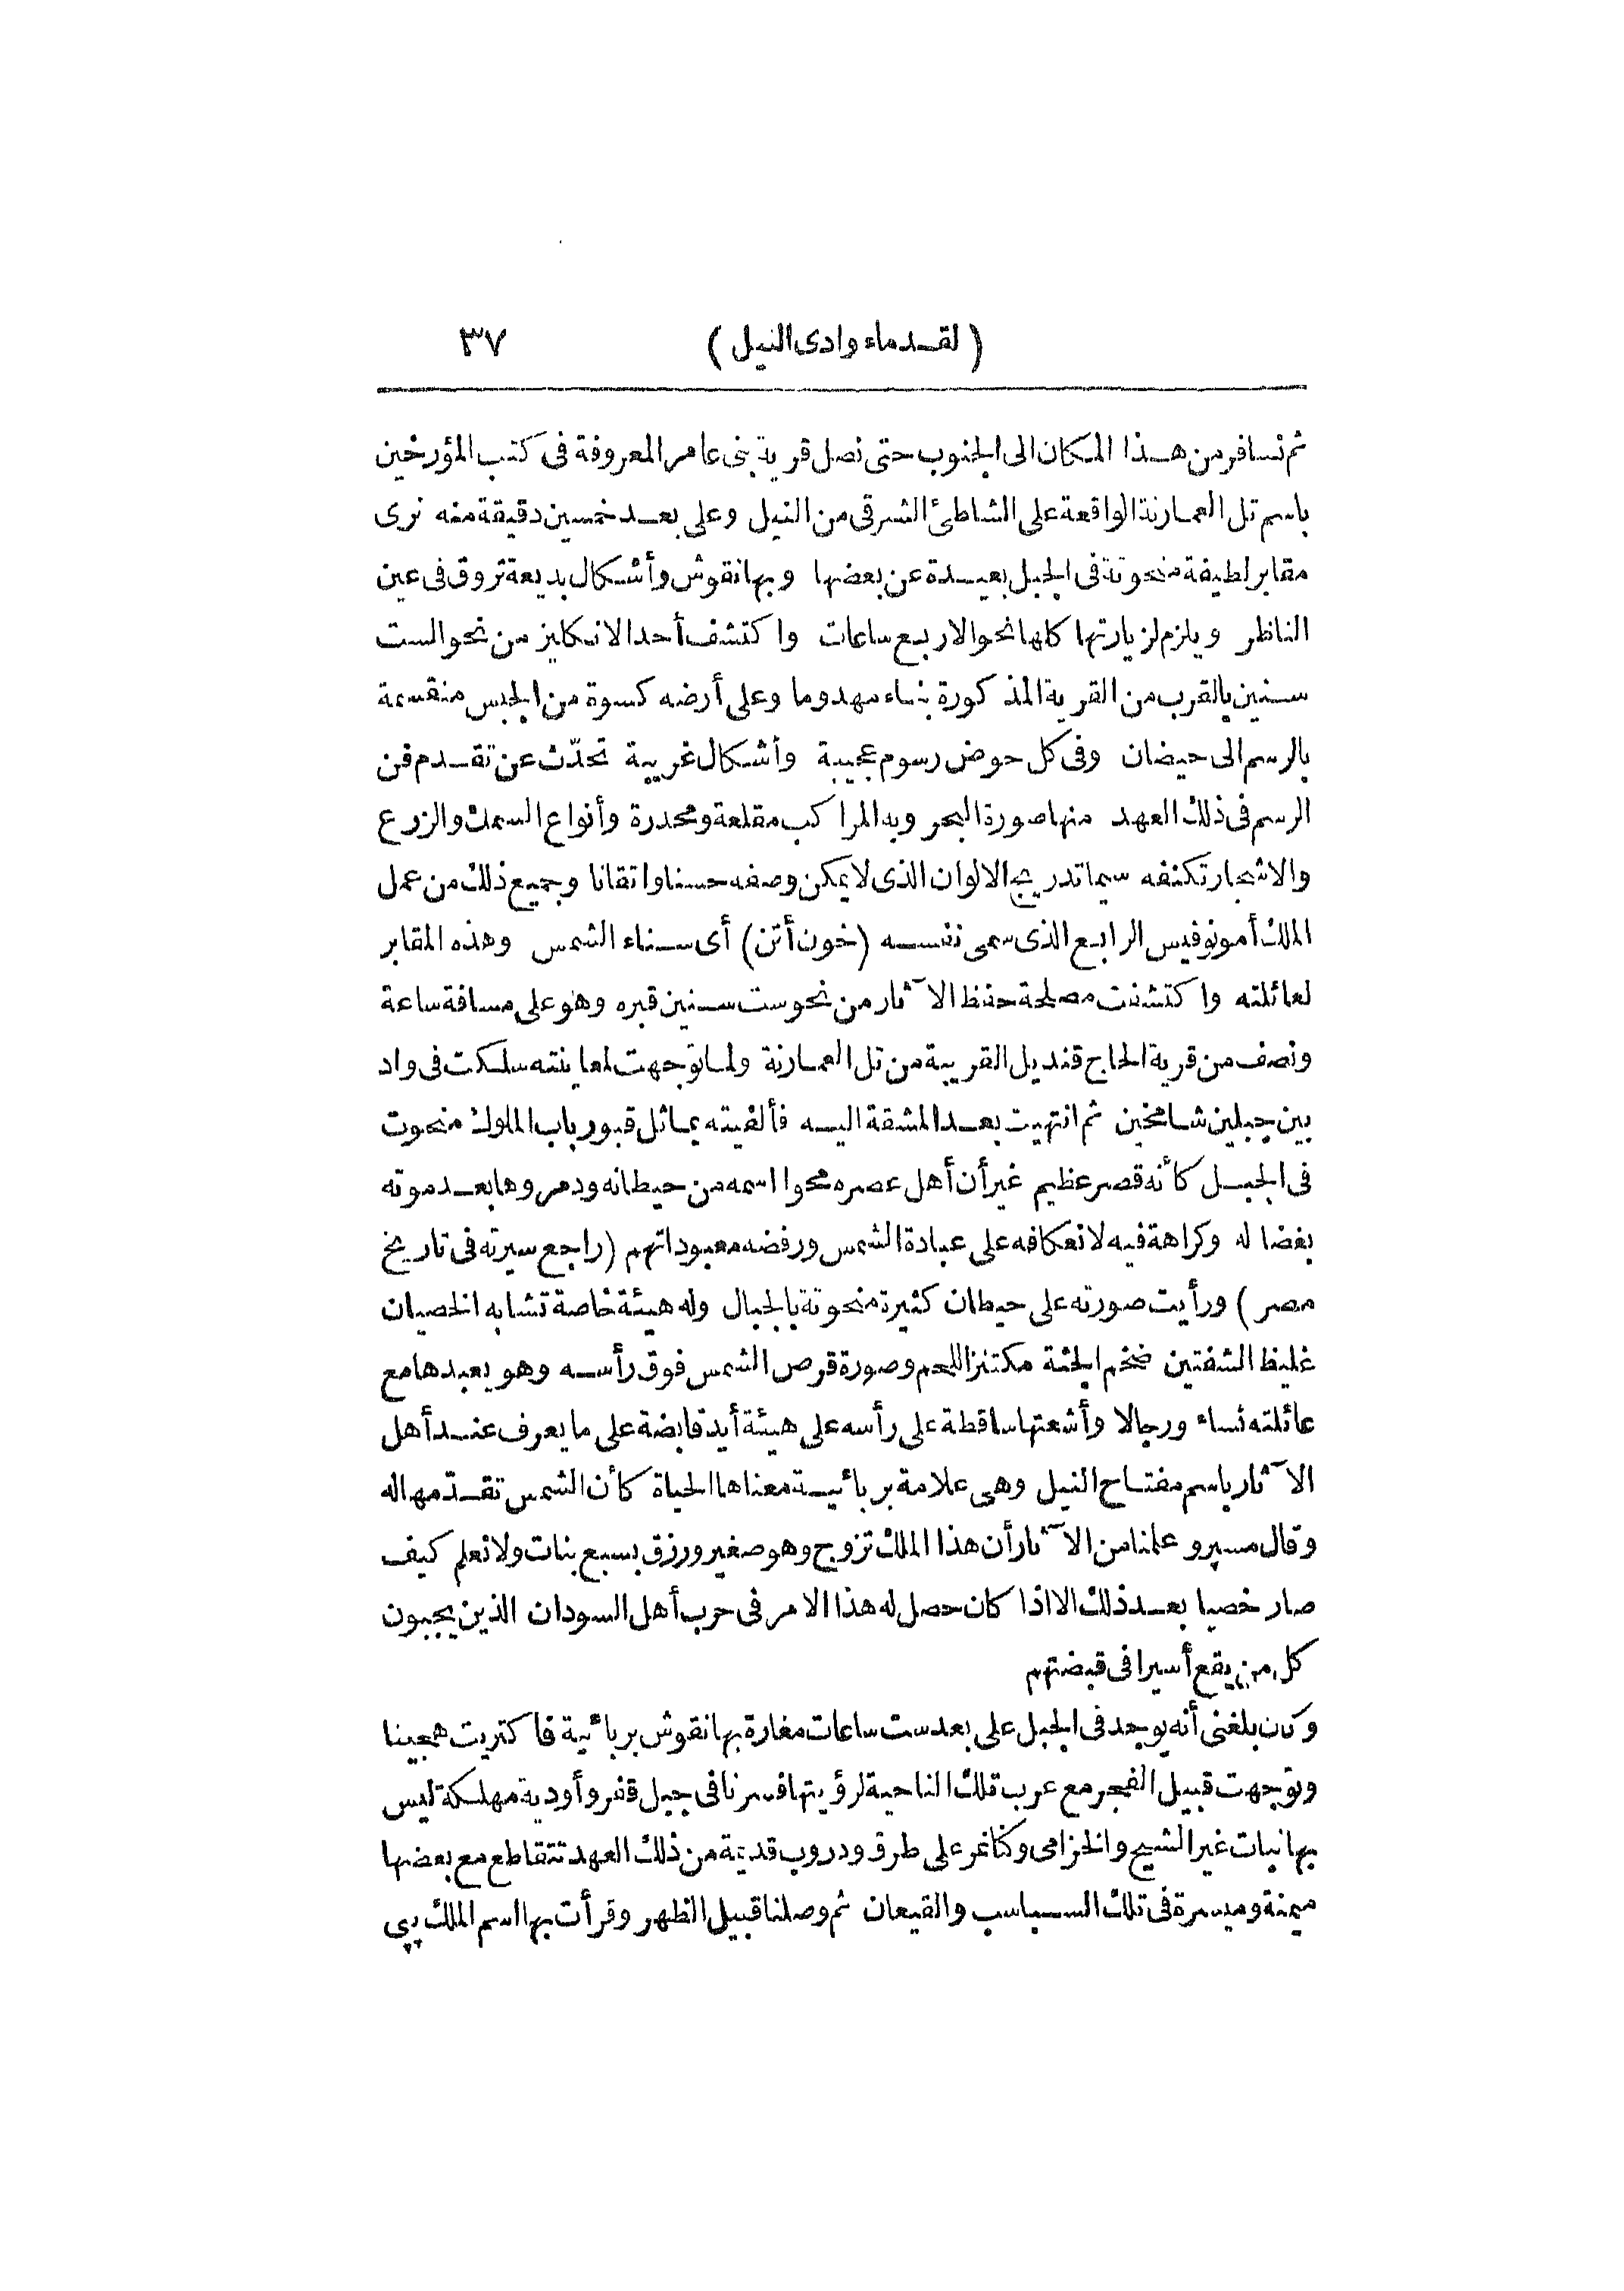 (لقدماء وادى النيل) ٣٧
ثم نسافر من هذا المكان الى الجنوب حتى نصل قرية بنى عامر المعروفة فى كتب المؤرخين
باسم تل العمارنة الواقعة على الشاطئ الشرقى من النيل وعلى بعد خمسين دقيقة منه نرى
مقابر لطيفة منحوتة فى الجبل بعيدة عن بعضها وبها نقوش وأشكال بديعة تروق فى عين
الناظر ويلزم لزيارتها كلها نحو الاربع ساعات واكتشف أحد الانكليز من نحو الست
سنين بالقرب من القرية المذكورة بناء مهدوما وعلى أرضه كسوة من الجبس منقسمة
بالرسم الى حيضان وفى كل حوض رسوم عجيبة وأشكال غريبة تحدّث عن تقدم فن
الرسم فى ذلك العهد منها صورة البحر وبه المراكب مقلعة ومحدرة وأنواع السمك والزرع
والاشجار تكنفه سيما تدريج الالوان الذى لا يمكن وصفه حسنا واتقانا وجميع ذلك من عمل
الملك أمونوفيس الرابع الذى سمى نفسه (خون أتن) أى سناء الشمس وهذه المقابر
لعائلته واكتشفت مصلحة حفظ الآثار من نحو ست سنين قبره وهو على مسافة ساعة
ونصف من قرية الحاج قنديل القريبة من تل العمارنة ولما توجهت لمعاينته سلكت فى واد
بين جبلين شامخين ثم انتهيت بعد المشقة اليه فألفيته يماثل قبور باب الملوك منحوت
فى الجبل كأنه قصر عظيم غير أن أهل عصره محوا اسمه من حيطانه ودمروها بعد موته
بغضا له وكراهة فيه لانعكافه على عبادة الشمس ورفضه معبوداتهم (راجع سيرته فى تاريخ
مصر) ورأيت صورته على حيطان كثيرة منحوتة بالجبال وله هيئة خاصة تشابه الخصيان
غليظ الشفتين ضخم الجثة مكتنز اللحم وصورة قرص الشمس فوق رأسه وهو يعبدها مع
عائلته نساء ورجالا وأشعتها ساقطة على رأسه على هيئة أيد قابضة على ما يعرف عند أهل
الآثار باسم مفتاح النيل وهى علامة بربائية معناها الحياة كأن الشمس تقدّمها له
وقال مسپرو علمنا من الآثار أن هذا الملك تزوج وهو صغير ورزق بسبع بنات ولا نعلم كيف
صار خصيا بعد ذلك الا اذا كان حصل له هذا الامر فى حرب أهل السودان الذين يجبون
كل من يقع أسيرا فى قبضتهم
وكان بلغنى أنه يوجد فى الجبل على بعد ست ساعات مغارة بها نقوش بربائية فاكتريت هجينا
وتوجهت قبيل الفجر مع عرب تلك الناحية لرؤيتها فسرنا فى جبل قفر وأودية مهلكة ليس
بها نبات غير الشيح والخزامى وكنا نمر على طرق ودروب قديمة من ذلك العهد تتقاطع مع بعضها
ميمنة وميسرة فى تلك السباسب والقيعان ثم وصلنا قبيل الظهر وقرأت بها اسم الملك پيى